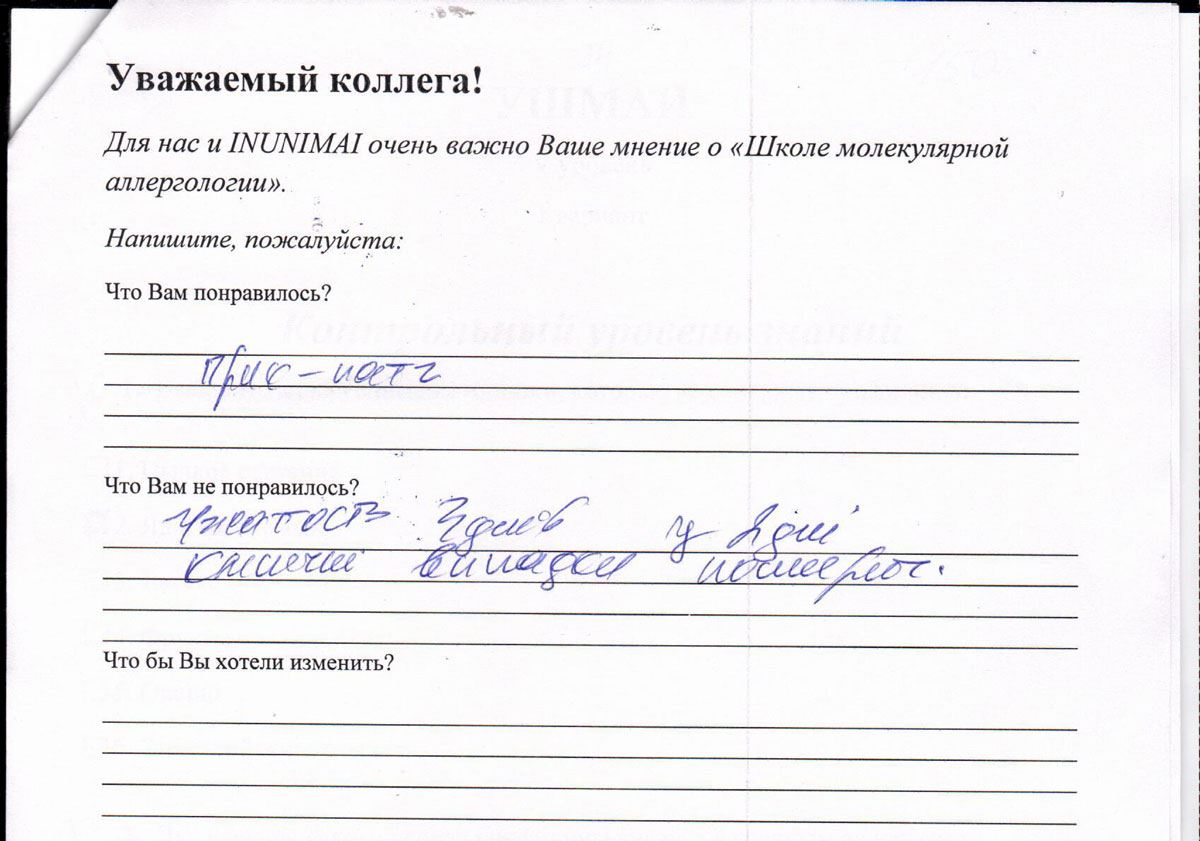 Уважаемый коллега!
Для нас и INUNIMAI очень важно Ваше мнение о «Школе молекулярной
аллергологии».
Напишите, пожалуйста:
Что Вам понравилось?
Прик-патч
Что Вам не понравилось?
у 2 дні
клінічні випадки
Что бы Вы хотели изменить?